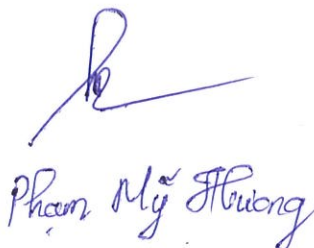 Phạm Mỹ Hương